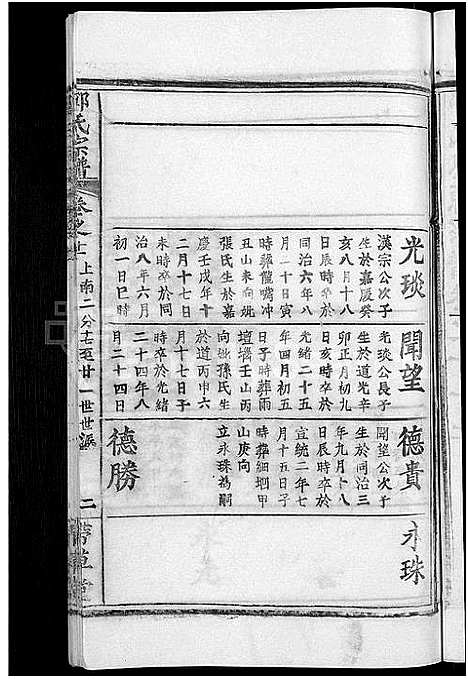 光琰
漢宗公次子
生於嘉慶癸
亥八月十八
日辰時卒於
同治六年八
月二十日寅
時葬龍嘴冲
丑山未向娶
張氏生於嘉
慶壬戌年十
二月十七日
未時卒於同
治八年六月
初一日巳時
聞望
光琰公長子
生於道光辛
卯正月初九
日亥時卒於
光緒二十五
年四月初五
日子時葬雨
壇壋壬山丙
向娶孫氏生
於道光丙申六
月十七日子
時卒於光緒
二十四年八
月二十四日
德貴
聞望公次子
生於同治三
年九月十八
日辰時卒於
宣統二年七
月十五日子
時葬細垇甲
山庚向
立永珠為嗣
德勝
永珠
氏宗譜
卷之十
上南二分十六至廿一世世派
二
草堂